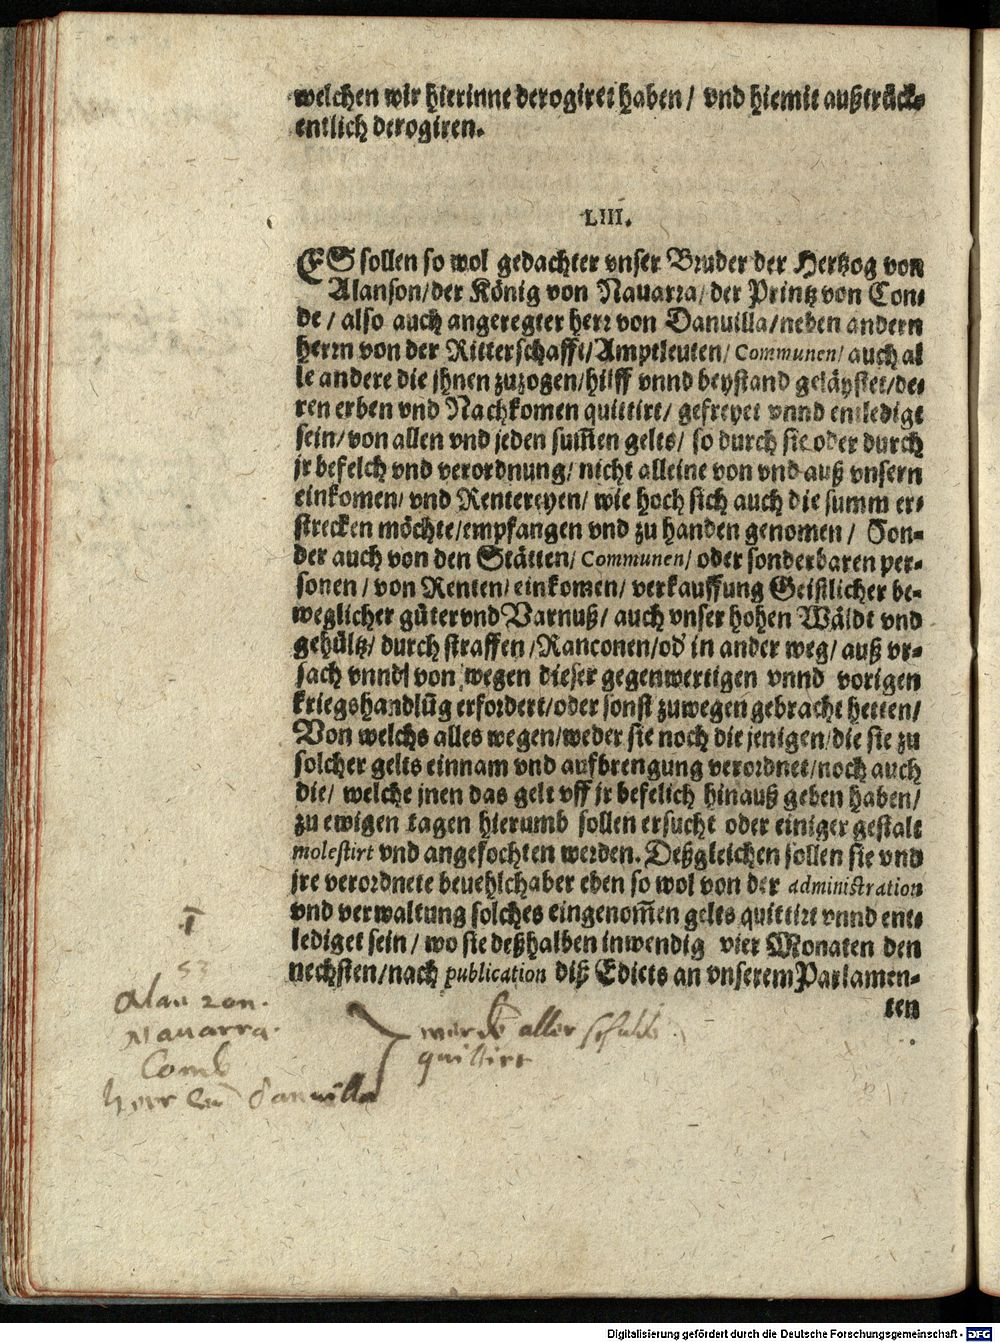 welchen wir hierinne derogiret haben / vnd hiemit außtrück-
entlich derogiren.
LIII.
ES sollen so wol gedachter vnser Bruder der Hertzog von
Alanson/der König von Nauarra/ der Printz von Con-
de / also auch angeregter herr von Danuilla/neben andern
herrn von der Ritterschafft/Amptleuten/ Communen/ auch al
le andere die jhnen zuzogen/hilff vnnd beystand geläystet/de-
ren erben vnd Nachkomen quittirt/ gefreyet vnnd entledigt
sein/von allen vnd jeden sum̃en gelts/ so durch sie oder durch
jr befelch vnd verordnung/ nicht alleine von vnd auß vnsern
einkomen/ vnd Rentereyen/ wie hoch sich auch die summ er-
strecken möchte/empfangen vnd zu handen genomen / Son-
der auch von den Stätten/ Communen/ oder sonderbaren per-
sonen / von Renten/ einkomen/ verkauffung Geistlicher be-
weglicher güter vnd Varnuß/ auch vnser hohen Wäldt vnd
gehültz/ durch straffen /Ranconen/od' in ander weg/ auß vr-
sach vnnd von wegen dieser gegenwertigen vnnd vorigen
kriegshandlũg erfordert/oder sonst zuwegen gebracht hetten/
Von welchs alles wegen/weder sie noch die jenigen/die sie zu
solcher gelts einnam vnd aufbrengung verordnet/noch auch
die/ welche jnen das gelt vff jr befelich hinauß geben haben/
zu ewigen tagen hierumb sollen ersucht oder einiger gestalt
molestirt vnd angefochten werden. Deßgleichen sollen sie vnd
jre verordnete beuehlchaber eben so wol von der administration
vnd verwaltung solches eingenom̃en gelts quittirt vnnd ent-
lediget sein / wo sie deßhalben inwendig vier Monaten den
nechsten/nach publication diß Edicts an vnserem Parlamen-
ten
53
Alanzon.
Nauarra.
herr danuilla
aller schulde
quittirt